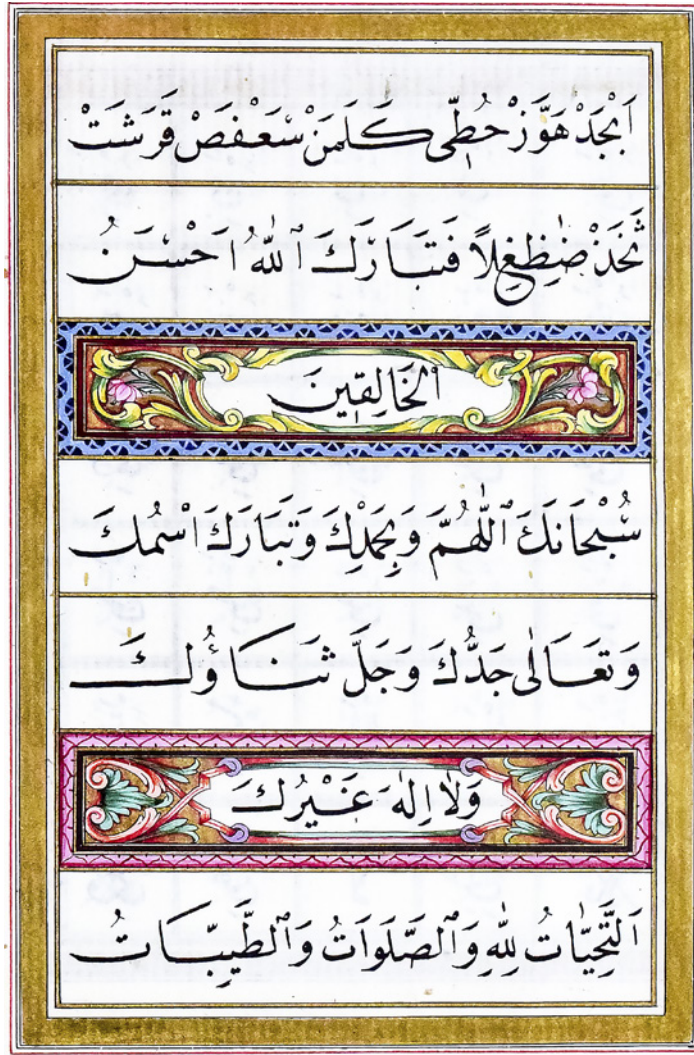 اَبْجَدْ هَوَّزْ حُطِّى كَلَمَنْ سَعْفَصْ قَرَشَتْ
ثَخَذْ ضَظَغِلاً فَتَبَارَكَ ٱللّٰهُ اَحْسَنُ
ٱلْخَالِقِينَ
سُبْحَانَكَ ٱللّٰهُمَّ وَبِحَمْدِكَ وَتَبَارَكَ اسْمُكَ
وَتَعَالٰى جَدُّكَ وَجَلَّ ثَنَاؤُكَ
وَلَا اِلٰهَ غَيْرُكَ
اَلتَّحِيَّاتُ لِلّٰهِ وَٱلصَّلَوَاتُ وَٱلطَّيِّبَاتُ